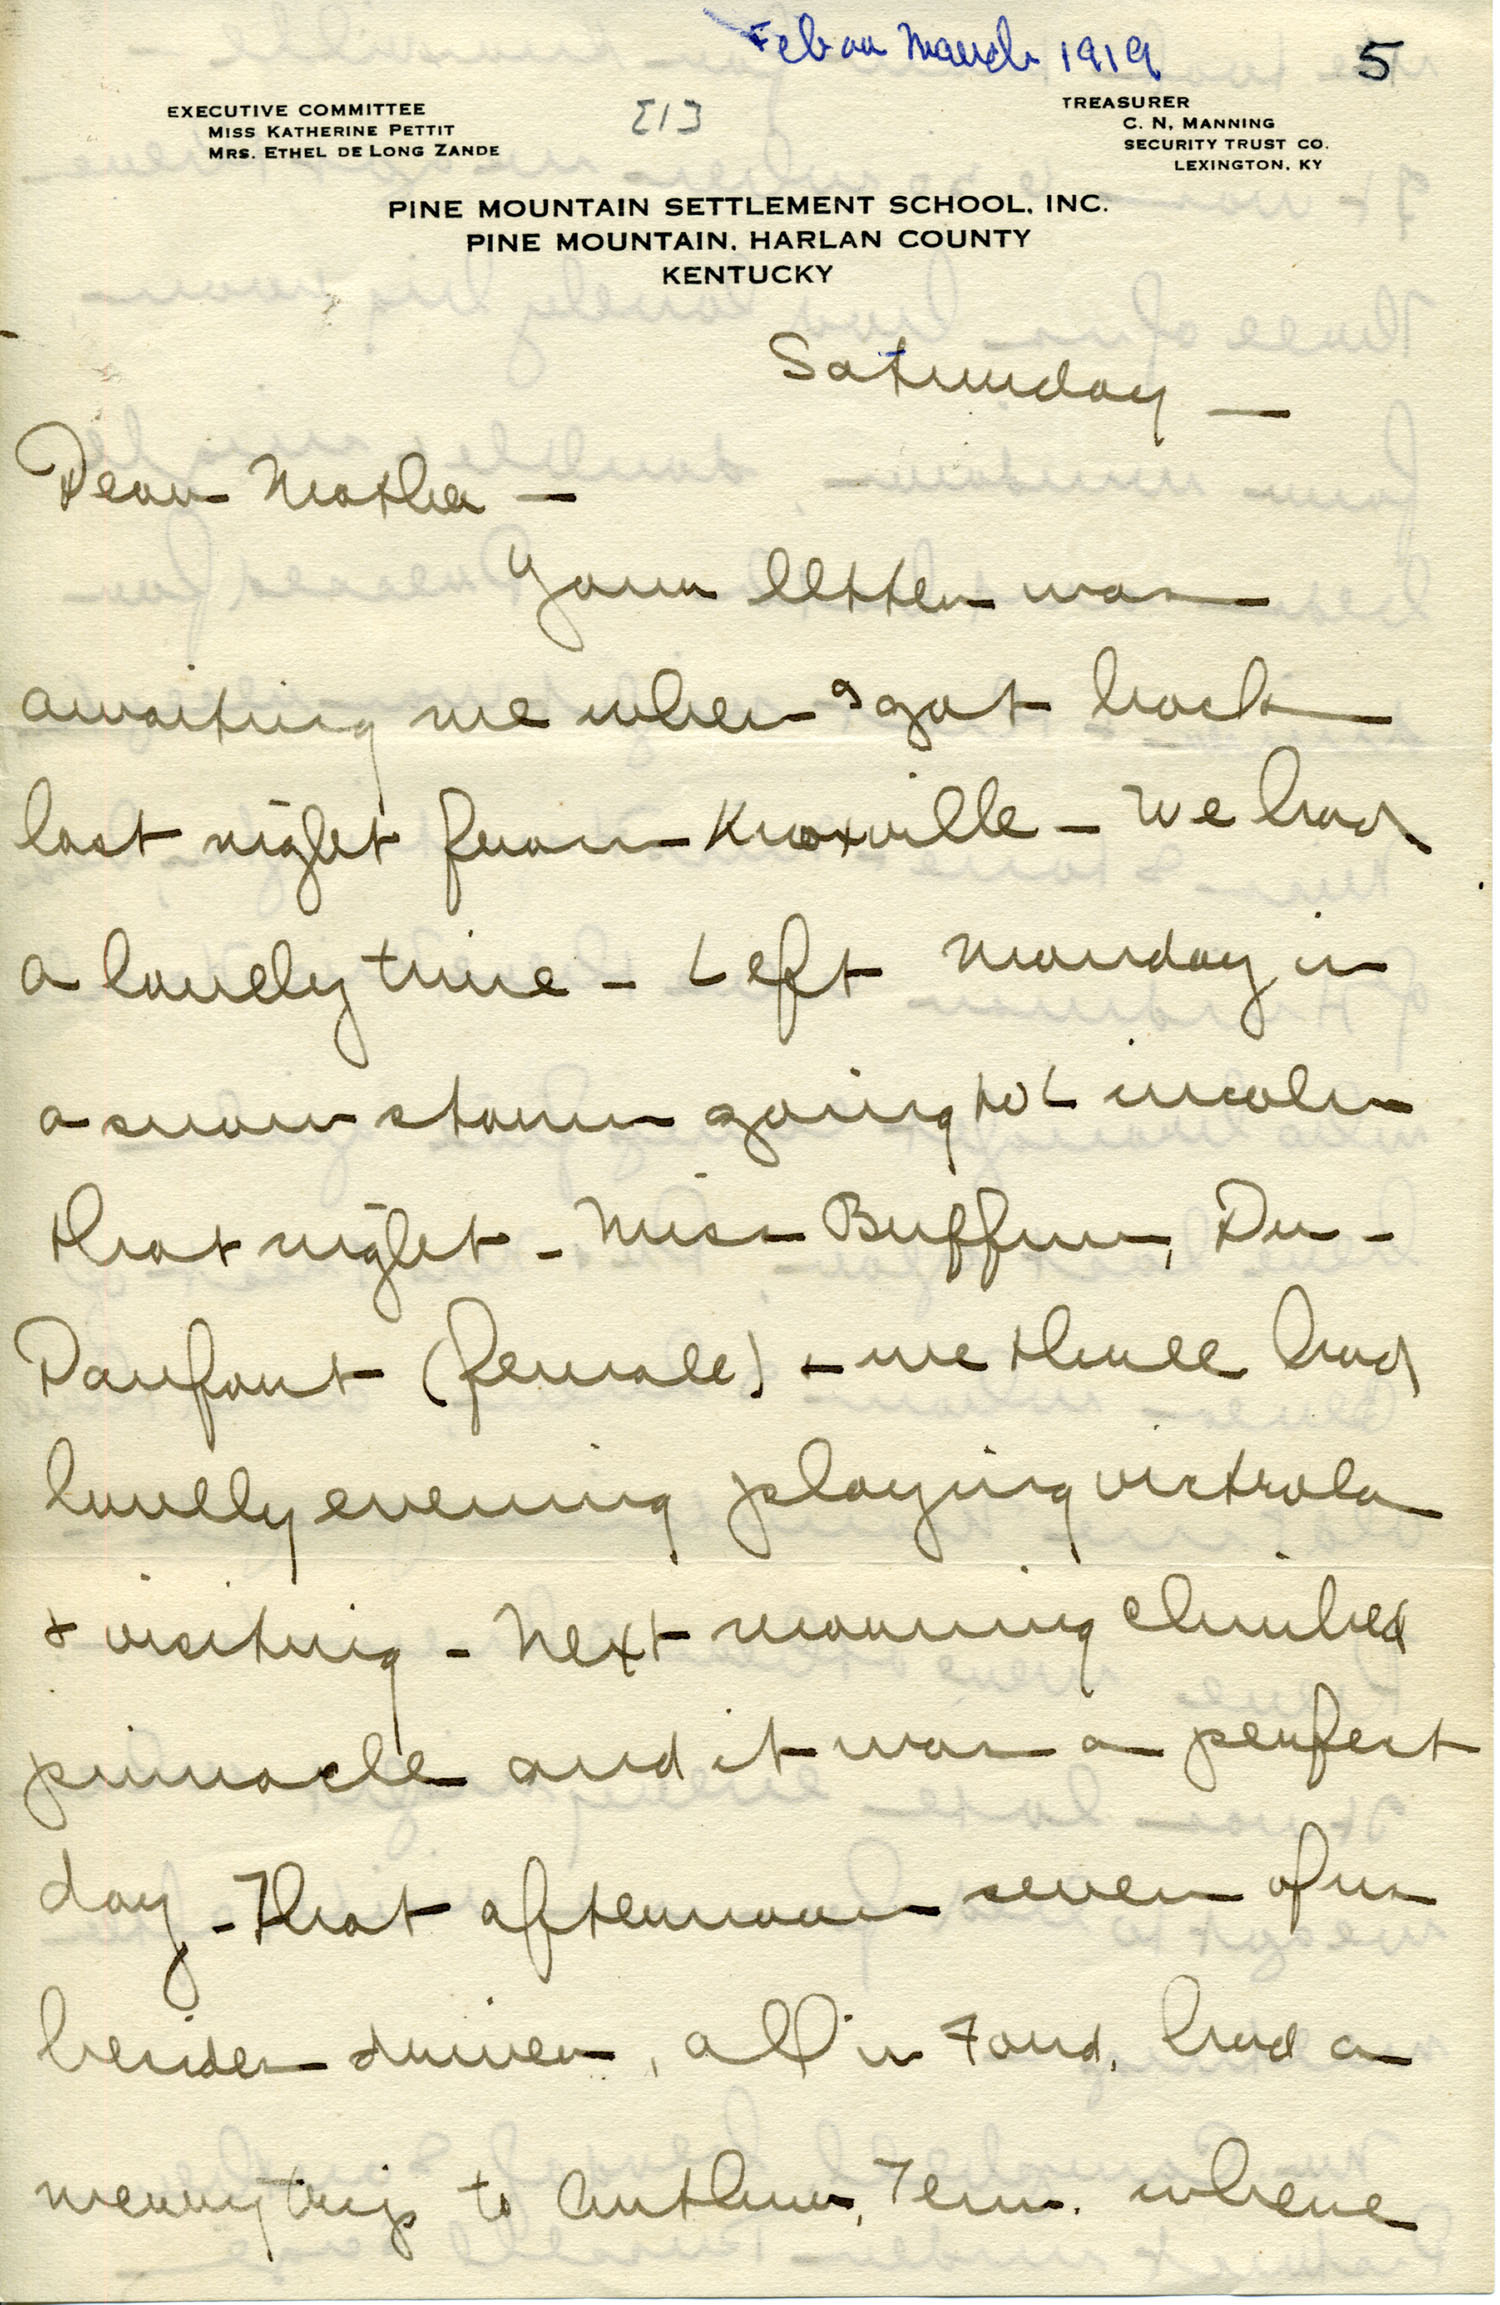 Feb or March 1919
5
EXECUTIVE COMMITTEE
MISS KATHERINE PETTIT
MRS. ETHEL DE LONG ZANDE
[1]
TREASURER
C. N. MANNING
SECURITY TRUST CO.
LEXINGTON, KY
PINE MOUNTAIN SETTLEMENT SCHOOL, INC.
PINE MOUNTAIN, HARLAN COUNTY
KENTUCKY
Saturday —
Dear Mother —
Your letter was
awaiting me when I got back
last night from Knoxville — We had
a lovely time — Left Monday in
a snow storm going to Lincoln
that night — Miss Buffum, Dr —
Danfort (female) + we three had
lovely evening playing victrola
+ visiting — Next morning climbed
pinnacle and it was a perfect
day — That afternoon seven of us
besides driver, all in Ford, had a
merry trip to Arthur, Tenn. where